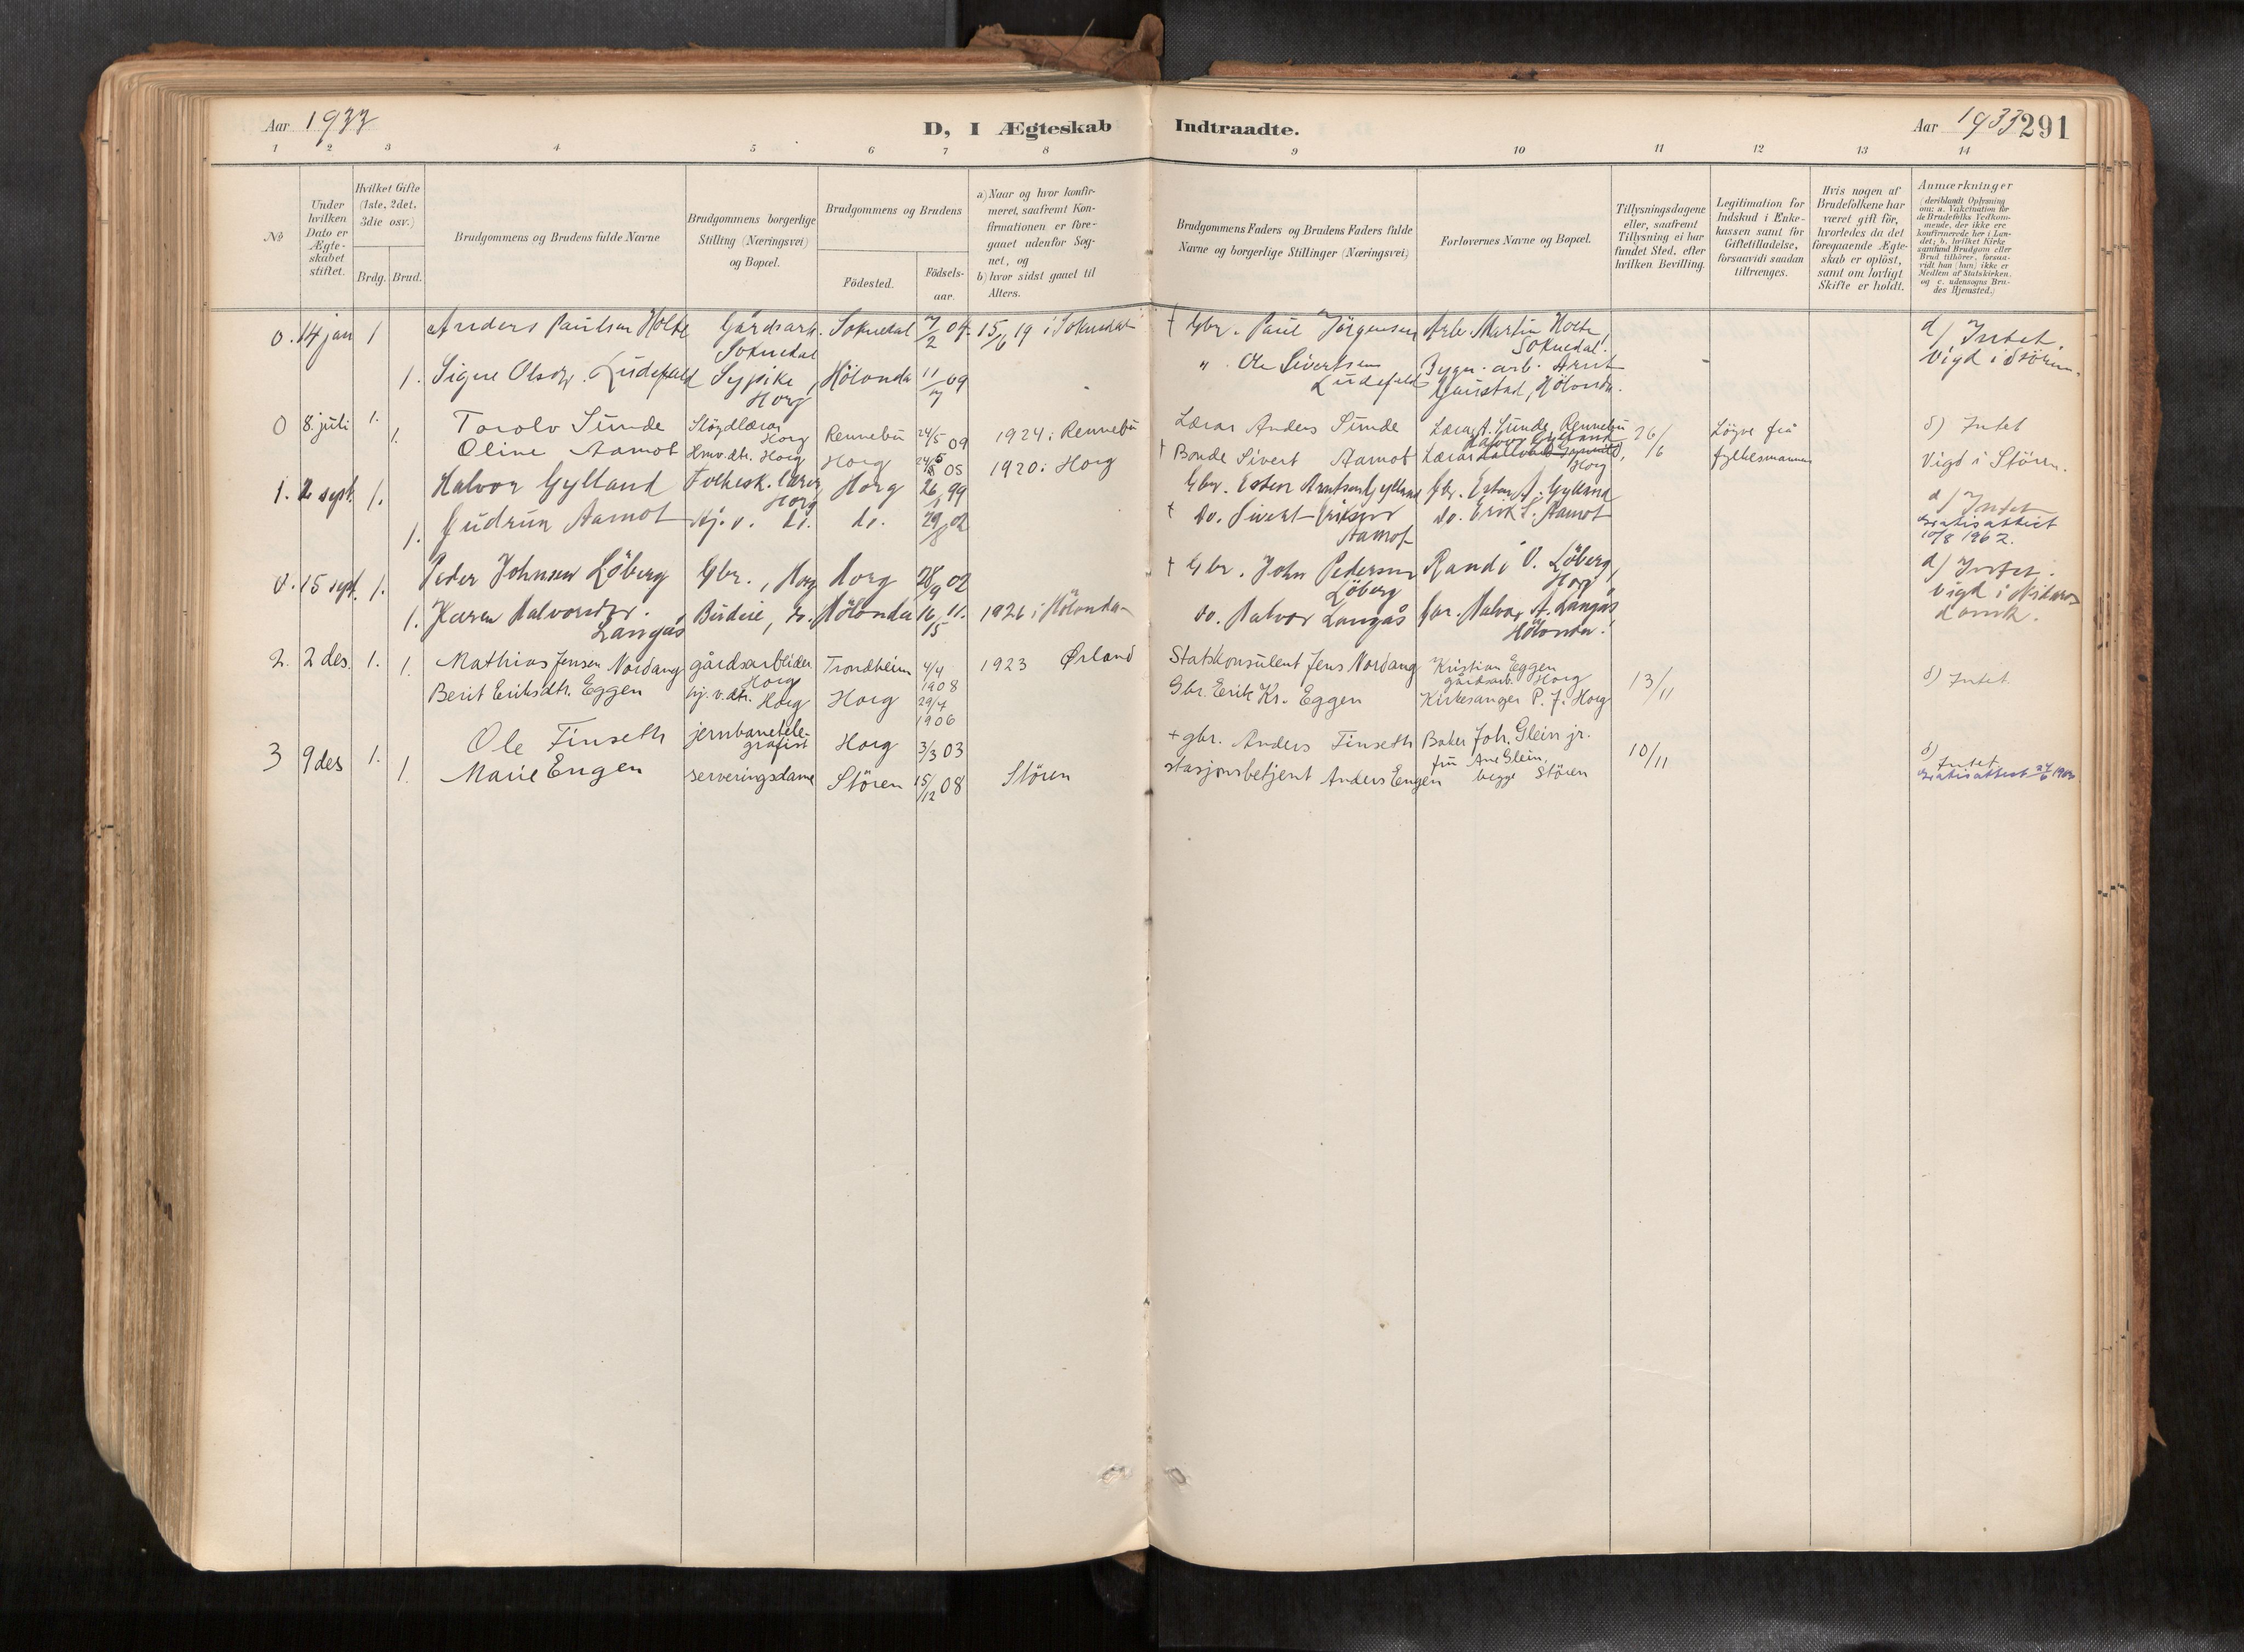 Aar 1933
D, I Ægteskab Indtraadte.
Aar 1933 291
1 2 3 4 5 6 7 8 9 10 11 12 13 14
No
Under hvilken Dato er Ægte-skabet stiftet.
Hvilket Gifte (1ste, 2det, 3die osv.)
Brdg. Brud.
Brudgommens og Brudens fulde Navne
Brudgommens borgerlige Stilling (Næringsvei) og Bopæl.
Brudgommens og Brudens
Födested.
Födsels-aar.
a) Naar og hvor konfir-meret, saafremt Kon-firmationen er fore-gaaet udenfor Sog-net, og
b) hvor sidst gaaet til Alters.
Brudgommens Faders og Brudens Faders fulde Navne og borgerlige Stillinger (Næringsvei)
Forlovernes Navne og Bopæl.
Tillysningsdagene eller, saafremt Tillysning ei har fundet Sted, efter hvilken Bevilling.
Legitimation for Indskud i Enke-kassen samt for Giftetilladelse, forsaavidt saadan tiltrænges.
Hvis nogen af Brudefolkene har været gift för, hvorledes da det foregaaende Ægte-skab er oplöst, samt om lovligt Skifte er holdt.
Anmærkninger
(deriblandt Oplysning om: a. Vakcination for de Brudefolks Vedkom-mende, der ikke ere konfirmerede her i Lan-det; b. hvilket Kirke samfund Brudgom eller Brud tilhörer, forsaa-vidt han (hun) ikke er Medlem af Statskirken, og c. udensogns Bru-des Hjemsted.)
0. 14 jan 1 Anders Paulsen Holte Gårdsarb. Soknedal Soknedal 7/2 04. 15/6 19 i Soknedal † Gbr. Paul Jörgensen Arb. Martin Holte, Soknedal. d) Intet. Vigd i Stören.
1. Signe Olsdtr. Ludefald Sypike, Horg Hölonda 11/7 09 " Ole Sivertsen Ludefald Bygn. arb. Arnt Gaustad, Hölonda.
0 8. juli 1. Torolv Sunde Slöydlærar Horg Rennebu 24/5 09 1924 i Rennebu Lærar Anders Sunde Lærar A. Sunde, Rennebu 26/6 Löyve frå fylkesmannen d) Intet
1. Oline Aamot Hmv. dtr. Horg Horg 05 1920 i Horg † Bonde Sivert Aamot Lærar Halvor Gylland Horg Vigd i Stören.
1. 2 sept. 1. Halvor Gylland Folkesk. lærer, Horg Horg 26/1 99 Gbr. Esten Arntsen Gylland Gbr. Esten A. Gylland d) Intet
1. Gudrun Aamot Hj. v. do. do. 29/8 02 † do. Sivert Eriksen Aamot do. Erik S. Aamot Gratisattest 10/8 1962.
0. 15 sept. 1. Peder Johnsen Löberg Gbr., Horg Horg 28/9 02 † Gbr. John Pedersen Löberg Randi O. Löberg, Horg d) Intet. Vigd i Nidaros domk.
1. Karen Halvorsdtr. Langås Budeie, do. Hölonda 16/5 11. 1926 i Hölonda do. Halvor Langås Gbr. Halvor A. Langås Hölonda.
2. 2 des. 1. Mathias Jensen Nordang gårdsarbeider Horg Trondheim 4/4 1908 1923 Ørland Statskonsulent Jens Nordang Kristian Eggen gårdsarb. Horg 13/11 d) Intet.
1. Berit Eriksdtr. Eggen hj. v. dtr. Horg Horg 29/4 1906 Gbr. Erik Kr. Eggen Kirkesanger P. J. Horg
3 9 des 1. Ole Finseth jernbanetele-grafist Horg 3/3 03 + gbr. Anders Finseth Baker Joh. Glein jr. 10/11 d) Intet.
1. Marie Engen serveringsdame Stören 15/12 08 Stören stasjonsbetjent Anders Engen fru Ane Glein, begge Stören Gratisattest